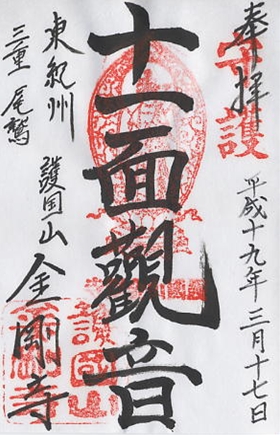 奉拝
守護
平成十九年三月十七日
十一面觀音
東紀州
三重 尾鷲
護国山 金剛寺
護國山